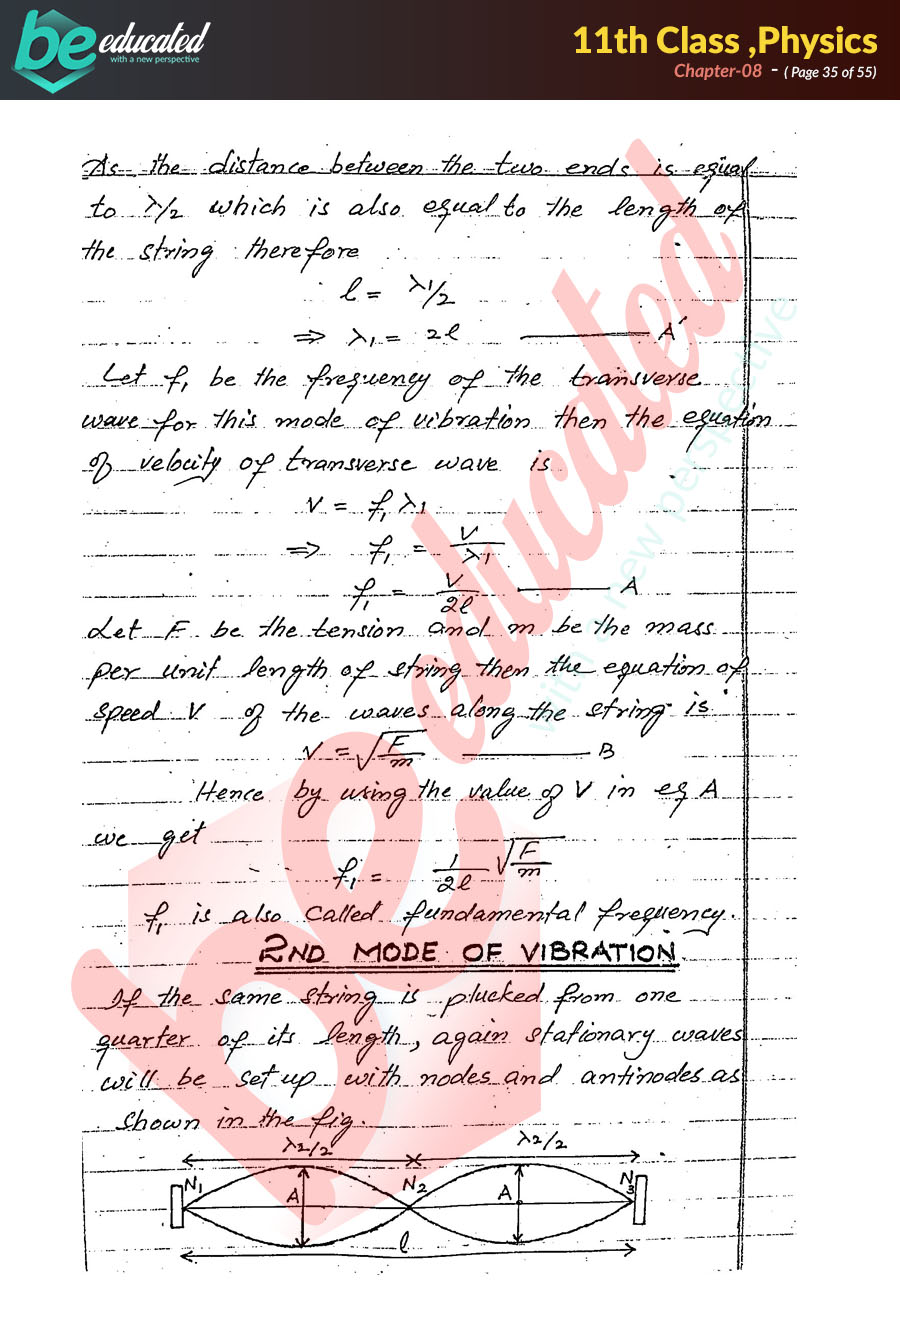 be educated
with a new perspective
11th Class ,Physics
Chapter-08 - ( Page 35 of 55)
As the distance between the two ends is equal
to λ/2 which is also equal to the length of
the string therefore
l = λ1/2
⇒ λ1 = 2l ——— A'
Let f1 be the frequency of the transverse
wave for this mode of vibration then the equation
of velocity of transverse wave is
V = f1 λ1
⇒ f1 = V/λ1
f1 = V/2l ——— A
Let F be the tension and m be the mass
per unit length of string then the equation of
speed V of the waves along the string is
V = √F/m ——— B
Hence by using the value of V in eq A
we get
f1 = 1/2l √F/m
f1 is also called fundamental frequency.
2ND MODE OF VIBRATION
If the same string is plucked from one
quarter of its length, again stationary waves
will be set up with nodes and antinodes as
shown in the fig.
λ2/2 λ2/2
N1 A N2 A N3
l
be educated
with a new perspective